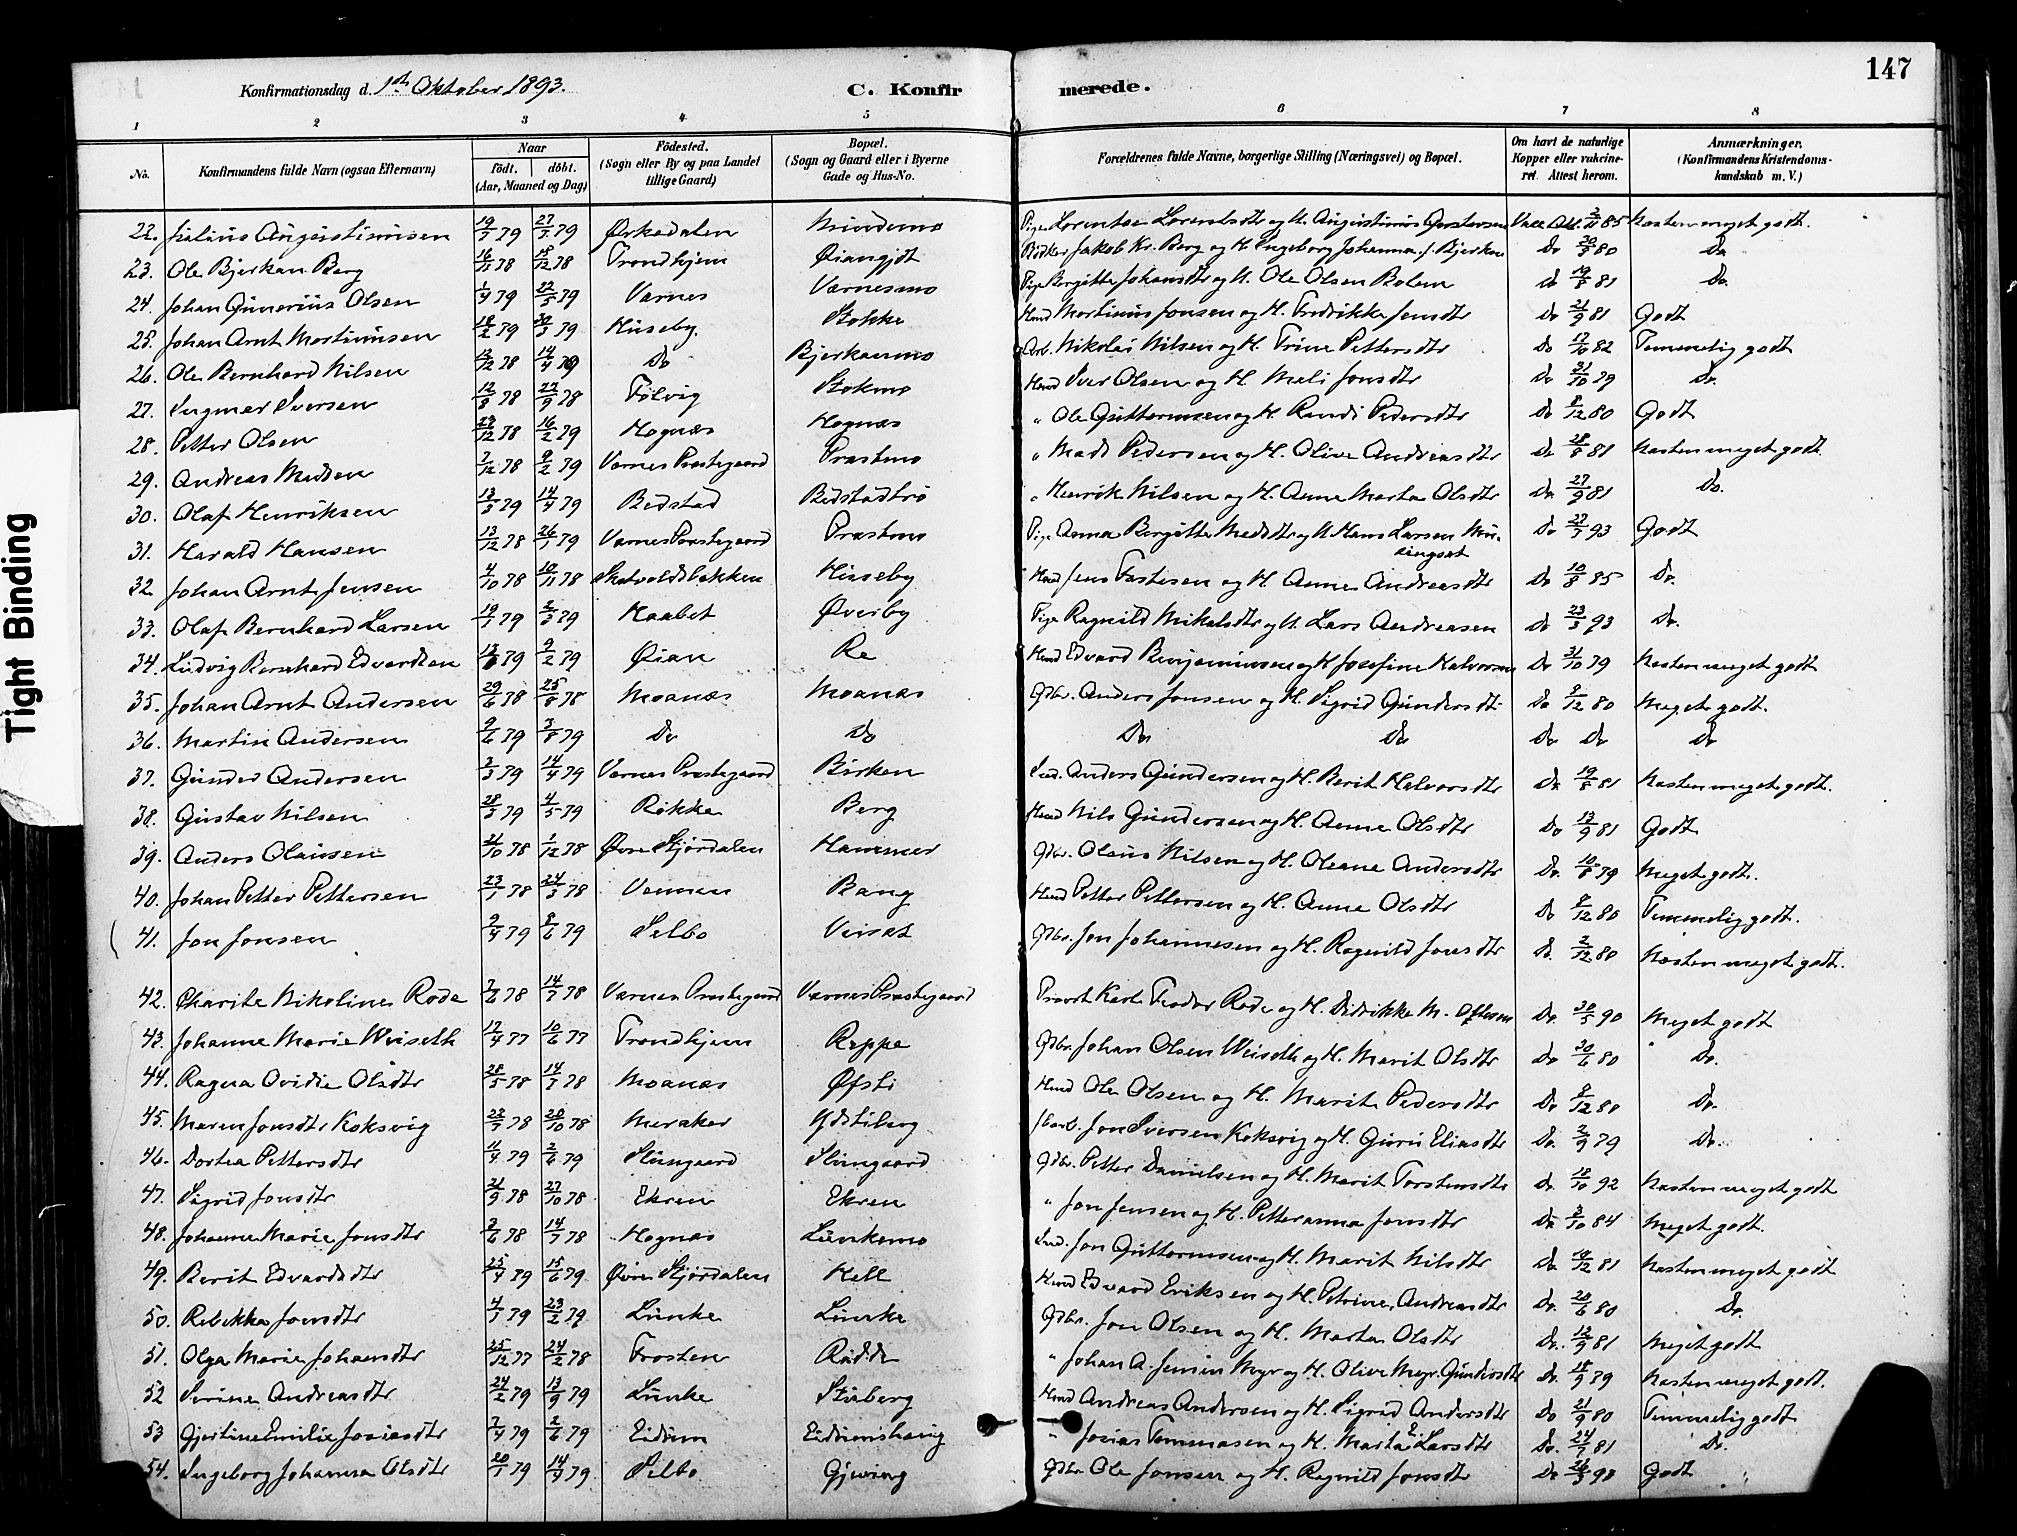 Tight Binding
Konfirmationsdag d. 1ste Oktober 1893. C. Konfirmerede. 147
1 2 3 4 5 6 7 8
No. Konfirmandens fulde Navn (ogsaa Efternavn) Naar födt. döbt. (Aar, Maaned og Dag) Födested. (Sogn eller By og paa Landet tillige Gaard) Bopæl. (Sogn og Gaard eller i Byerne Gade og Hus-No. Forældrenes fulde Navne, borgerlige Stilling (Næringsvei) og Bopæl. Om havt de naturlige Kopper eller vakcineret. Attest herom. Anmærkninger. (Konfirmandens Kristendomskundskab m. V.)
22. Julius Augustinusen 19/7 79 27/7 79 Ørkedalen Pige Lorentse Lorentsdtr og U. Augustinus 85 Næsten meget godt.
23. Ole Bjerkan Berg 16/11 78 15/12 78 Trondhjem Øiangjdt Bödker Jakob Kr. Berg og H. Ingeborg Johanna f. Bjerkan Do 80 Do
24. Johan Gunerius Olsen 1/4 79 22/5 79 Værnes Værnesmo Pige Bergitte Johansdtr og U. Ole Olsen Bolem do 19/8 81 Do.
25. Johan Arnt Martinusen 18/2 79 30/3 79 Husby Stokke Hmd Martinus Jonsen og H. Fredrikke Jonsdtr Do 21/9 81 Godt
26. Ole Bernhard Nilsen 12/12 78 14/4 79 Do Bjerkanmo Arb. Nikolai Nilsen og H. Trine Pettersdtr Do 17/10 82 Temmelig godt
27. Ingmar Iversen 12/8 78 22/9 78 Fölvig Stokmo Hmd Iver Olsen og H. Mali Jonsdtr Do 21/10 79 Do.
28. Petter Olsen 23/12 78 16/2 79 Hognæs Hognæs " Ole Guttormsen og H. Randi Pedersdtr Do 8/12 80 Godt
29. Andreas Madsen 7/12 78 9/2 79 Værnes Præstegaard Præstmo " Mads Pedersen og H. Olive Andreasdtr Do 28/8 81 Næsten meget godt.
30. Olaf Henriksen 13/3 79 14/4 79 Bedstad Bedstadtrö " Henrik Nilsen og H. Anne Marta Olsdtr Do 27/9 81 Do.
31. Harald Hansen 13/12 78 26/1 79 Værnes Præstegaard Præstmo Pige Anna Bergitte Madsdtr og U. Hans Larsen Do 27/7 93 Godt
32. Johan Arnt Jensen 4/10 78 10/11 78 Skatvoldsbakken Husby Hmd Jens Fastesen og H. Anne Andreasdtr Do 10/8 85 Do.
33. Olaf Bernhard Larsen 19/1 79 2/3 79 Haabet Øverby Pige Ragnild Mikalsdtr og U. Lars Andreasen Do 23/3 93 Do.
34. Ludvig Bernhard Edvardsen 79 9/2 79 Øian Re Hmd Edvard Benjaminsen og H. Josefine Halvorsen Do 31/10 79 Næsten meget godt
35. Johan Arnt Andersen 29/6 78 25/8 78 Moanæs Moanæs Gdbr. Anders Jonsen og H. Sigrid Gundersdtr Do 9/12 80 Meget godt.
36. Martin Andersen 9/6 79 3/8 79 Do Do Do Do Do Do Do
37. Gunder Andersen 2/3 79 14/4 79 Værnes Præstegaard Birken Ind. Anders Gundersen og H. Berit Halvorsdtr Do 19/8 81 Næsten meget godt.
38. Gustav Nilsen 28/3 79 4/5 79 Røkke Berg Hmd Nils Gundersen og H. Anne Olsdtr Do 13/9 81 Godt
39. Anders Olausen 21/10 78 1/12 78 Øvre Stjørdalen Hammer Gdbr. Olaus Nilsen og H. Oleane Andersdtr Do. 10/8 79 Meget godt.
40. Johan Petter Pettersen 23/1 78 24/3 78 Bang Hmd Petter Pettersen og H. Anne Olsdtr Do 9/12 80 Temmelig godt.
41. Jon Jonsen 9/4 79 8/6 79 Selbo Gdbr. Jon Johannesen og H. Ragnild Jonsdtr Do. 2/12 80 Næsten meget godt.
42. Charite Nikoline Rode 2/6 78 14/7 78 Værnes Præstegaard Værnes Præstegaard Provst Karl Teodor Rode og H. Didrikke M. Do. 30/5 90 Meget godt
43. Johanne Marie Weiseth 17/4 77 10/6 77 Trondhjem Reppe Gdbr. Johan Olsen Weiseth og H. Marit Olsdtr Do 30/6 80 Do.
44. Ragna Ovidie Olsdtr 28/5 78 14/7 78 Moanæs Øfsti Hmd Ole Olsen og H. Marit Pedersdtr Do 9/12 80 Do.
45. Maren Jonsdtr Koksvig 22/7 78 20/10 78 Meraker Ydstiberg Jon Iversen Koksvig og H. Guru Eliasdtr Do. 2/9 79 Do.
46. Dortea Pettersdtr 11/4 79 2/6 79 Slungaard Slungaard Gdbr. Petter Danielsen og H. Marit Torstensdtr Do 18/10 92 Næsten meget godt
47. Sigrid Jonsdtr 21/9 78 27/10 78 Ekren Ekren " Jon Jensen og H. Petteranna Jonsdtr Do 3/10 84 Meget godt.
48. Johanne Marie Jonsdtr 3/6 78 14/7 78 Hognæs Lunkemo Ind. Jon Guttormsen og H. Marit Nilsdtr Do 19/12 81 Næsten meget godt
49. Berit Edvardsdtr 25/4 79 15/6 79 Øvre Stjørdalen Hell Hmd Edvard Eriksen og H. Petrine Andreasdtr Do. 20/6 80 Do.
50. Rebekka Jonsdtr 4/1 79 23/2 79 Lunke Lunke Gdbr. Jon Olsen og H. Marta Olsdtr Do. 12/9 81 Meget godt
51. Olga Marie Johansdtr 25/12 77 24/2 78 Frosten Rödde " Johan A. Jensen Myr og H. Olive Myr Gundersdtr Do. 18/9 79 Næsten meget godt.
52 Serine Andreasdtr 24/2 79 13/9 79 Lunke Stuberg Hmd Andreas Andersen og H. Sigrid Andersdtr Do 21/9 80 Temmelig godt
53 Gjertine Emilie Josiasdtr 7/4 79 2/6 79 Eidum Eidumshaug " Josias Tommasen og H. Marta E. Larsdtr Do. 24/7 81 Do.
54. Ingeborg Johanna Olsdtr 20/1 79 14/9 79 Selbo Gjeving Gdbr Ole Jonsen og H. Ragnild Jonsdtr Do 26/3 93 Godt